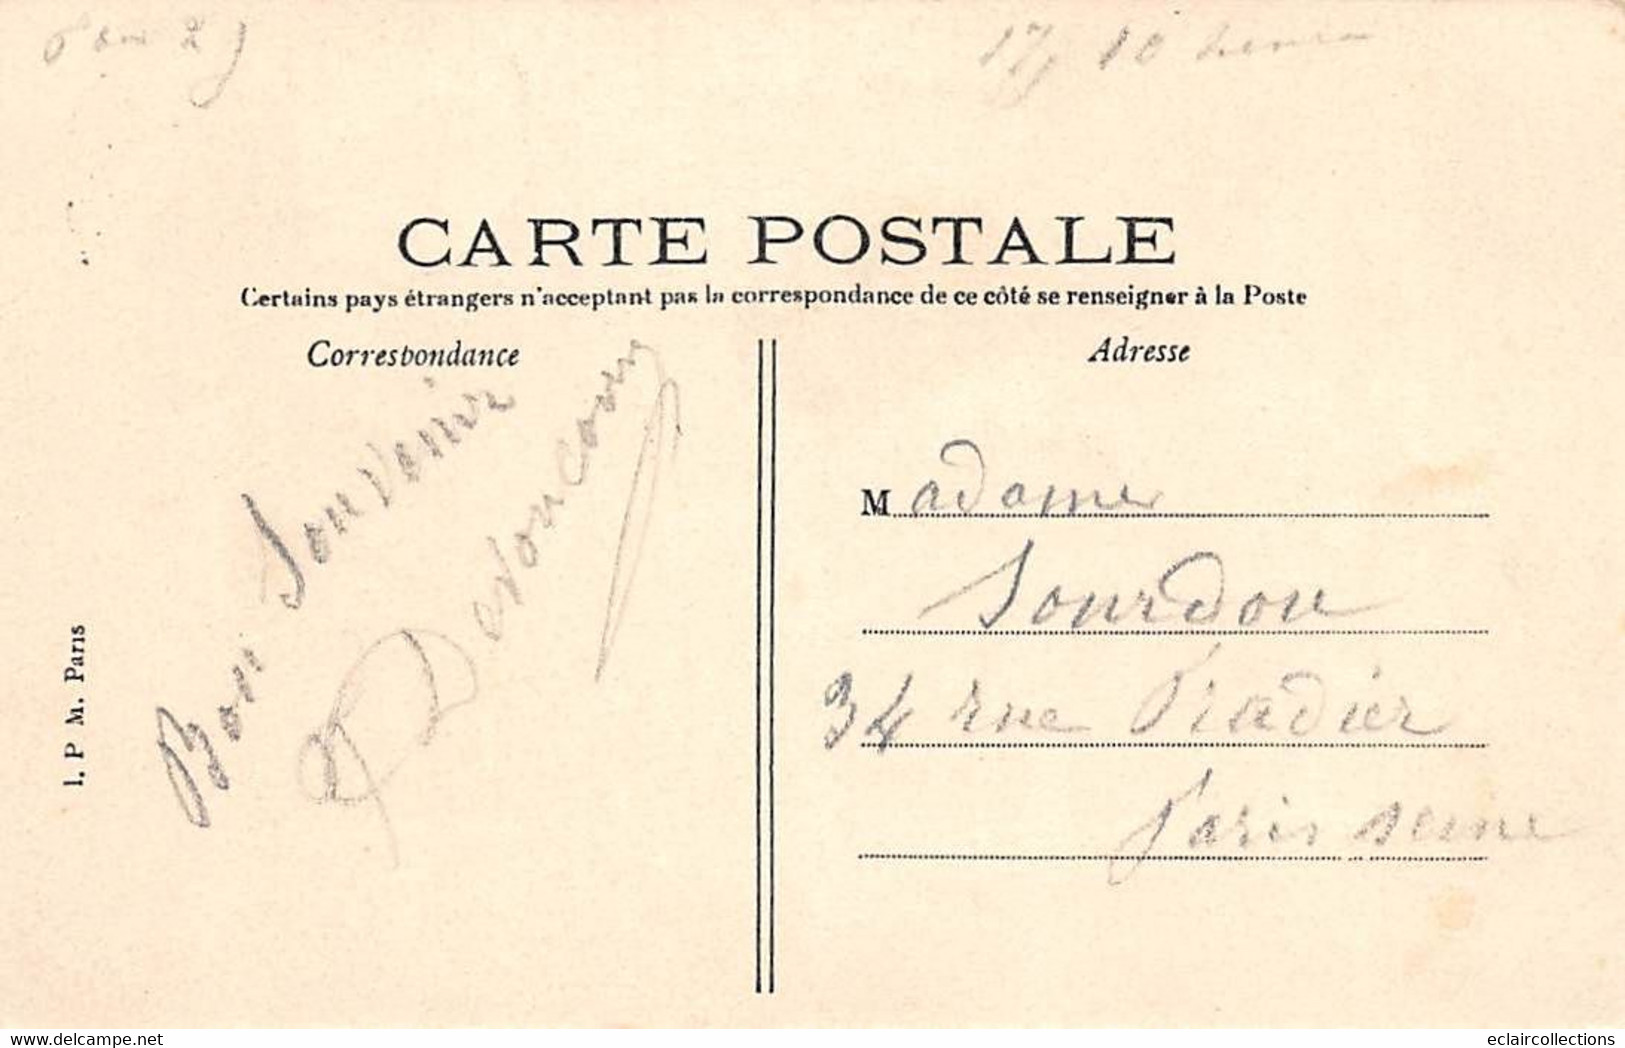 17 10
CARTE POSTALE
Certains pays étrangers n'acceptant pas la correspondance de ce côté se renseigner à la Poste
Correspondance
Adresse
Bon Souvenir
Madame
Sourdou
34 rue Pradier
Paris seine
I. P M. Paris
delcampe.net
eclaircollections